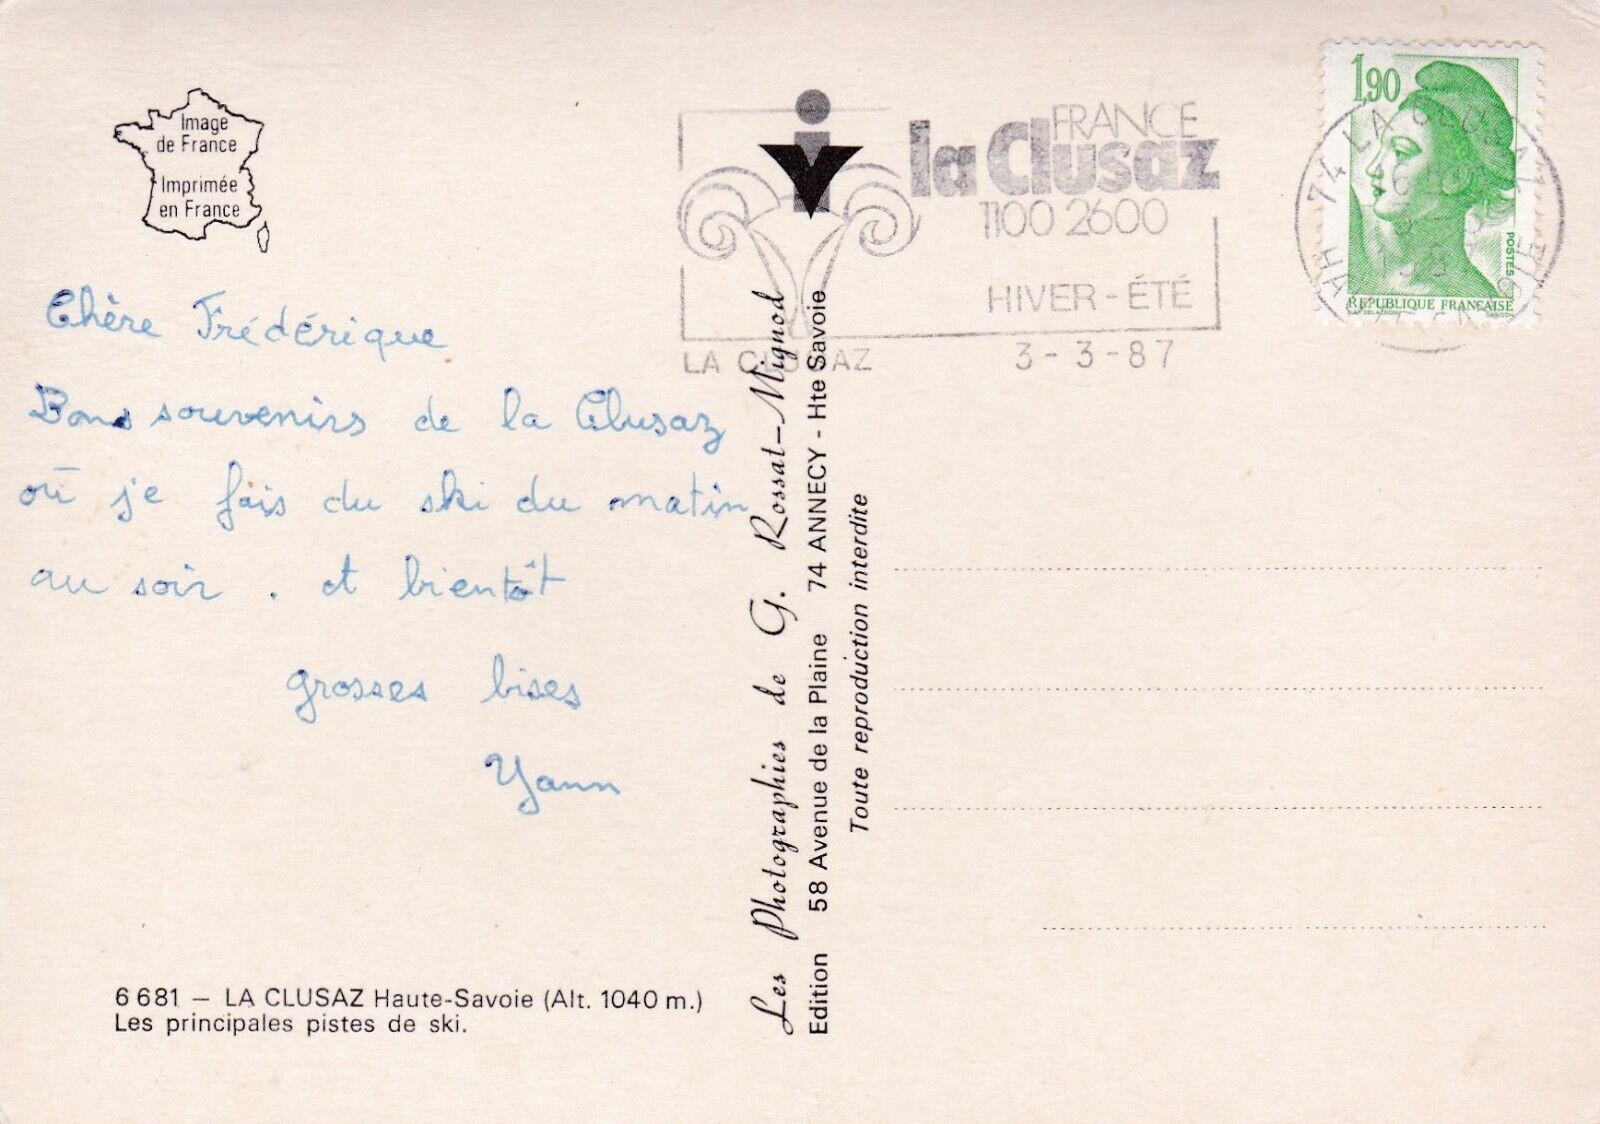 Image
de France
Imprimée
en France
FRANCE
la Clusaz
1100 2600
HIVER - ÉTÉ
LA CLUSAZ 3 - 3 - 87
1,90
POSTES
RÉPUBLIQUE FRANÇAISE
74 LA CLUSAZ
Chère Frédérique
Bons souvenirs de la Clusaz
où je fais du ski du matin
au soir . et bientôt
grosses bises
Yann
6 681 – LA CLUSAZ Haute-Savoie (Alt. 1040 m.)
Les principales pistes de ski.
Les Photographies de G. Rossat-Mignod
Edition 58 Avenue de la Plaine 74 ANNECY - Hte Savoie
Toute reproduction interdite